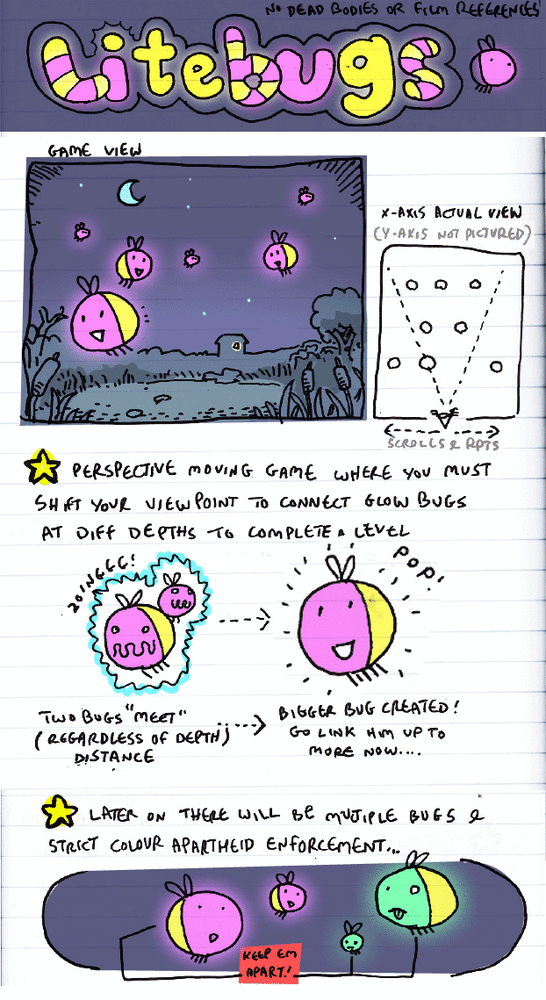 NO DEAD BODIES OR FILM REFERENCES!
Litebugs
GAME VIEW
X-AXIS ACTUAL VIEW
(Y-AXIS NOT PICTURED)
SCROLLS & RPTS
PERSPECTIVE MOVING GAME WHERE YOU MUST
SHIFT YOUR VIEWPOINT TO CONNECT GLOW BUGS
AT DIFF DEPTHS TO COMPLETE A LEVEL
ZOINGGG!
POP!
TWO BUGS "MEET"
(REGARDLESS OF DEPTH)
DISTANCE
BIGGER BUG CREATED!
GO LINK HIM UP TO
MORE NOW....
LATER ON THERE WILL BE MUTIPLE BUGS &
STRICT COLOUR APARTHEID ENFORCEMENT...
KEEP EM
APART!